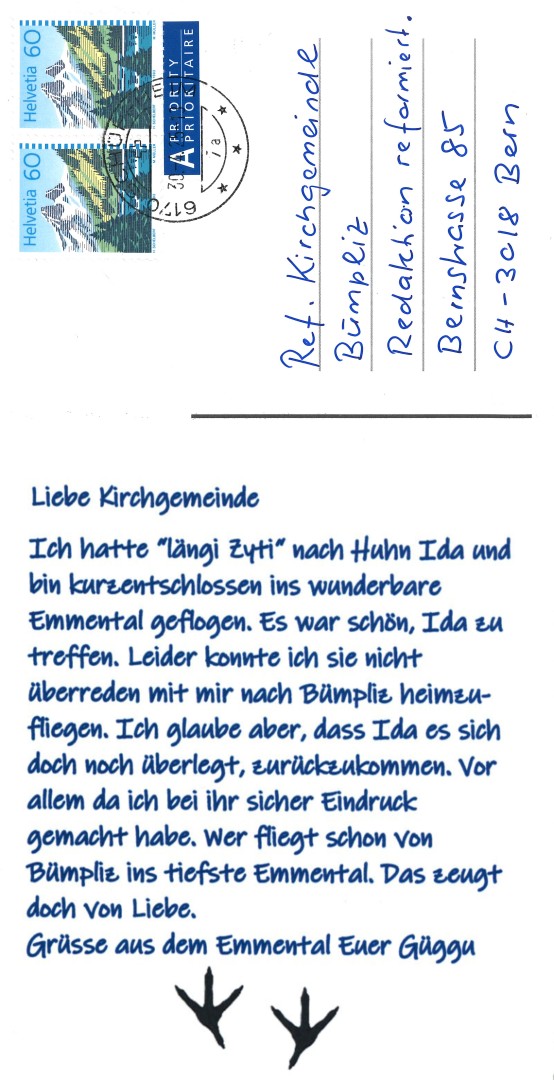 Helvetia 60
Helvetia 60
A PRIORITY
PRIORITAIRE
6170
Ref. Kirchgemeinde
Bümpliz
Redaktion reformiert.
Bernstrasse 85
CH-3018 Bern
Liebe Kirchgemeinde
Ich hatte "längi Zyti" nach Huhn Ida und
bin kurzentschlossen ins wunderbare
Emmental geflogen. Es war schön, Ida zu
treffen. Leider konnte ich sie nicht
überreden mit mir nach Bümpliz heimzu-
fliegen. Ich glaube aber, dass Ida es sich
doch noch überlegt, zurückzukommen. Vor
allem da ich bei ihr sicher Eindruck
gemacht habe. Wer fliegt schon von
Bümpliz ins tiefste Emmental. Das zeugt
doch von Liebe.
Grüsse aus dem Emmental Euer Güggu